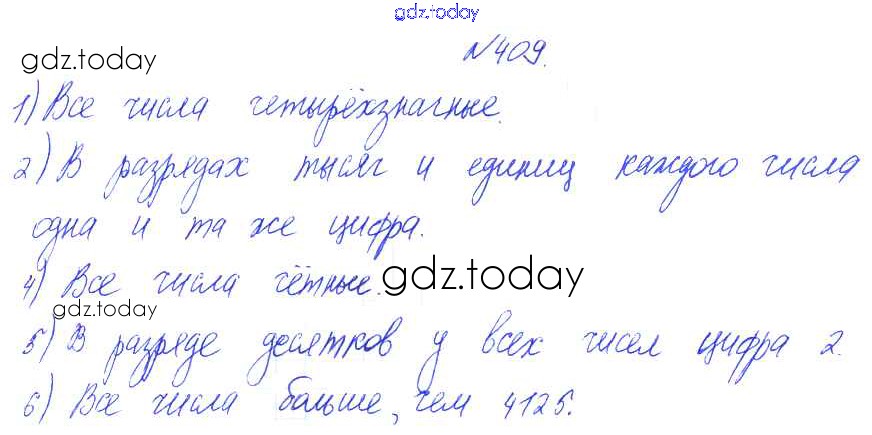 gdz.today
№409.
gdz.today
1) Все числа четырёхзначные.
2) В разрядах тысяч и единиц каждого числа
одна и та же цифра.
4) Все числа чётные.
gdz.today
gdz.today
5) В разряде десятков у всех чисел цифра 2.
6) Все числа больше, чем 4125.